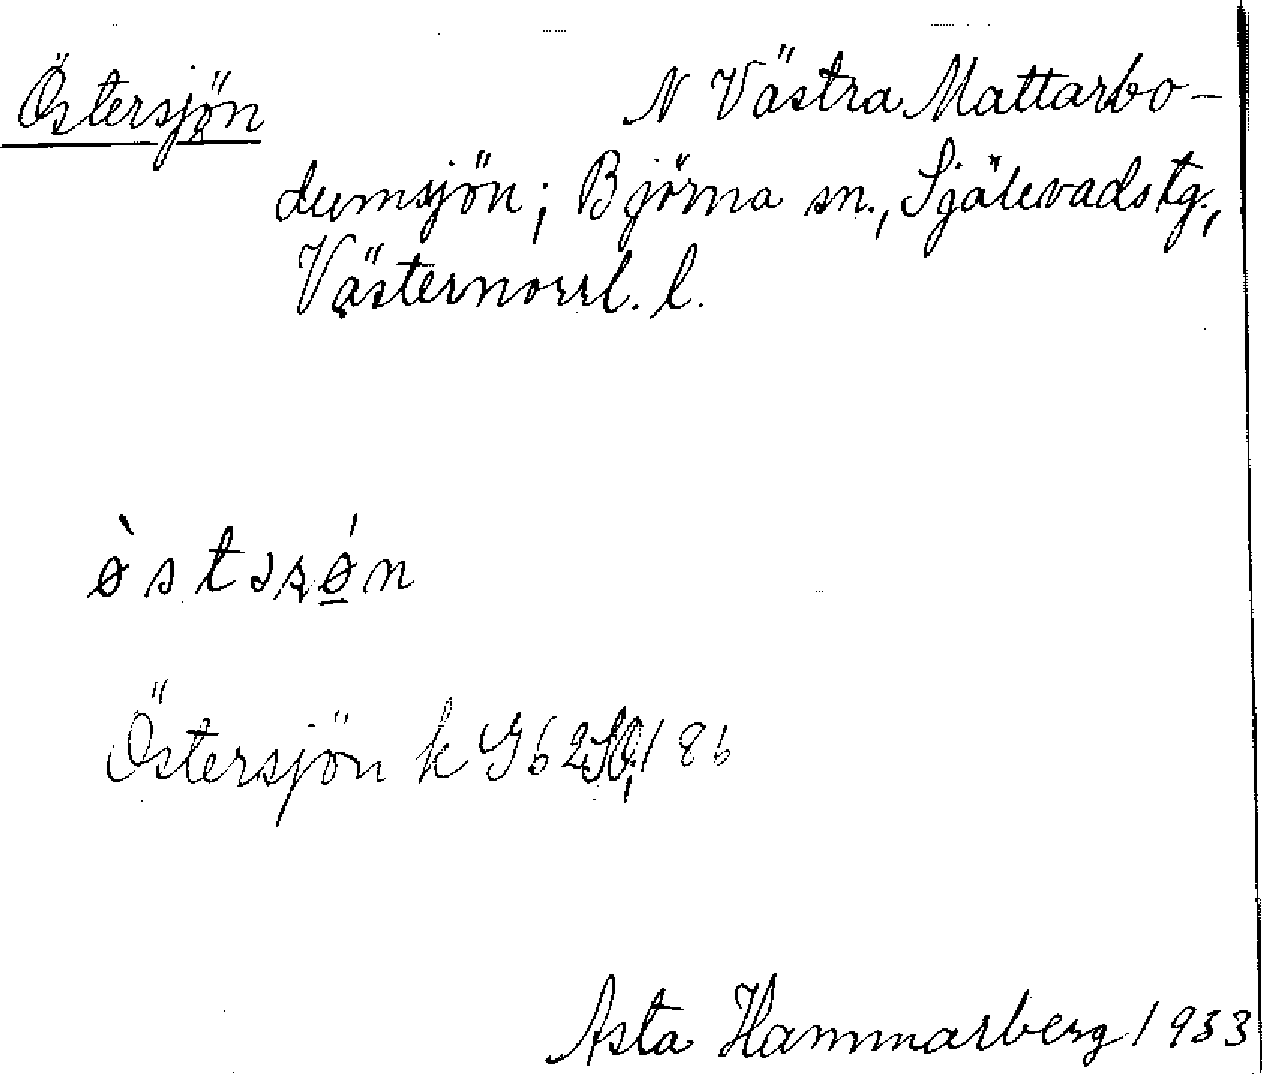 Östersjön N Västra Mattarbo-
dumsjön; Björna sn., Själevads tg.,
Västernorrl. l.
ø̀stəʂǿ̲n
Östersjön k G6250;1 86
Asta Hammarberg 1933